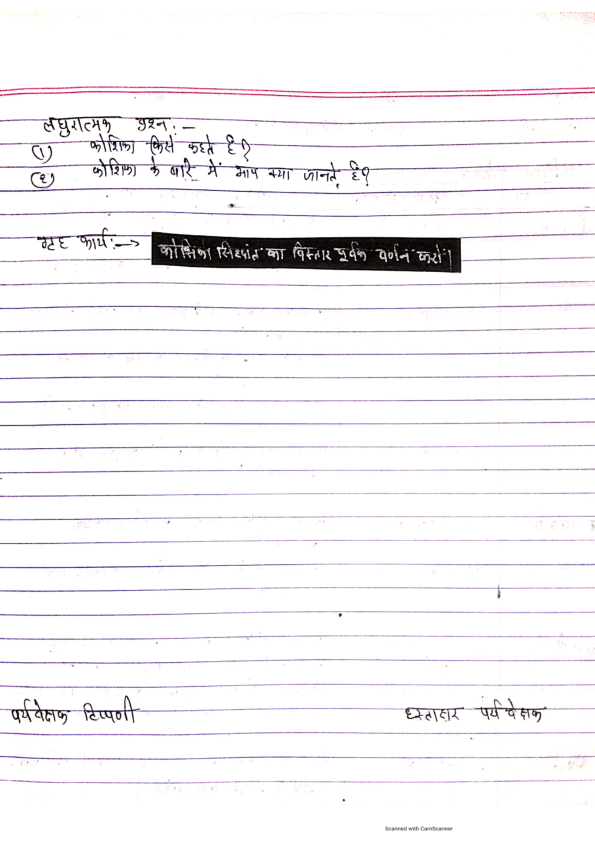 लघुरात्मक प्रश्न:—
(1) कोशिका किसे कहते है?
(2) कोशिका के बारे में आप क्या जानते है?
ग्रह कार्य:—> कोशिका सिद्धांत का विस्तार पूर्वक वर्णन करो।
पर्यवेक्षक टिप्पणी हस्ताक्षर पर्यवेक्षक
Scanned with CamScanner